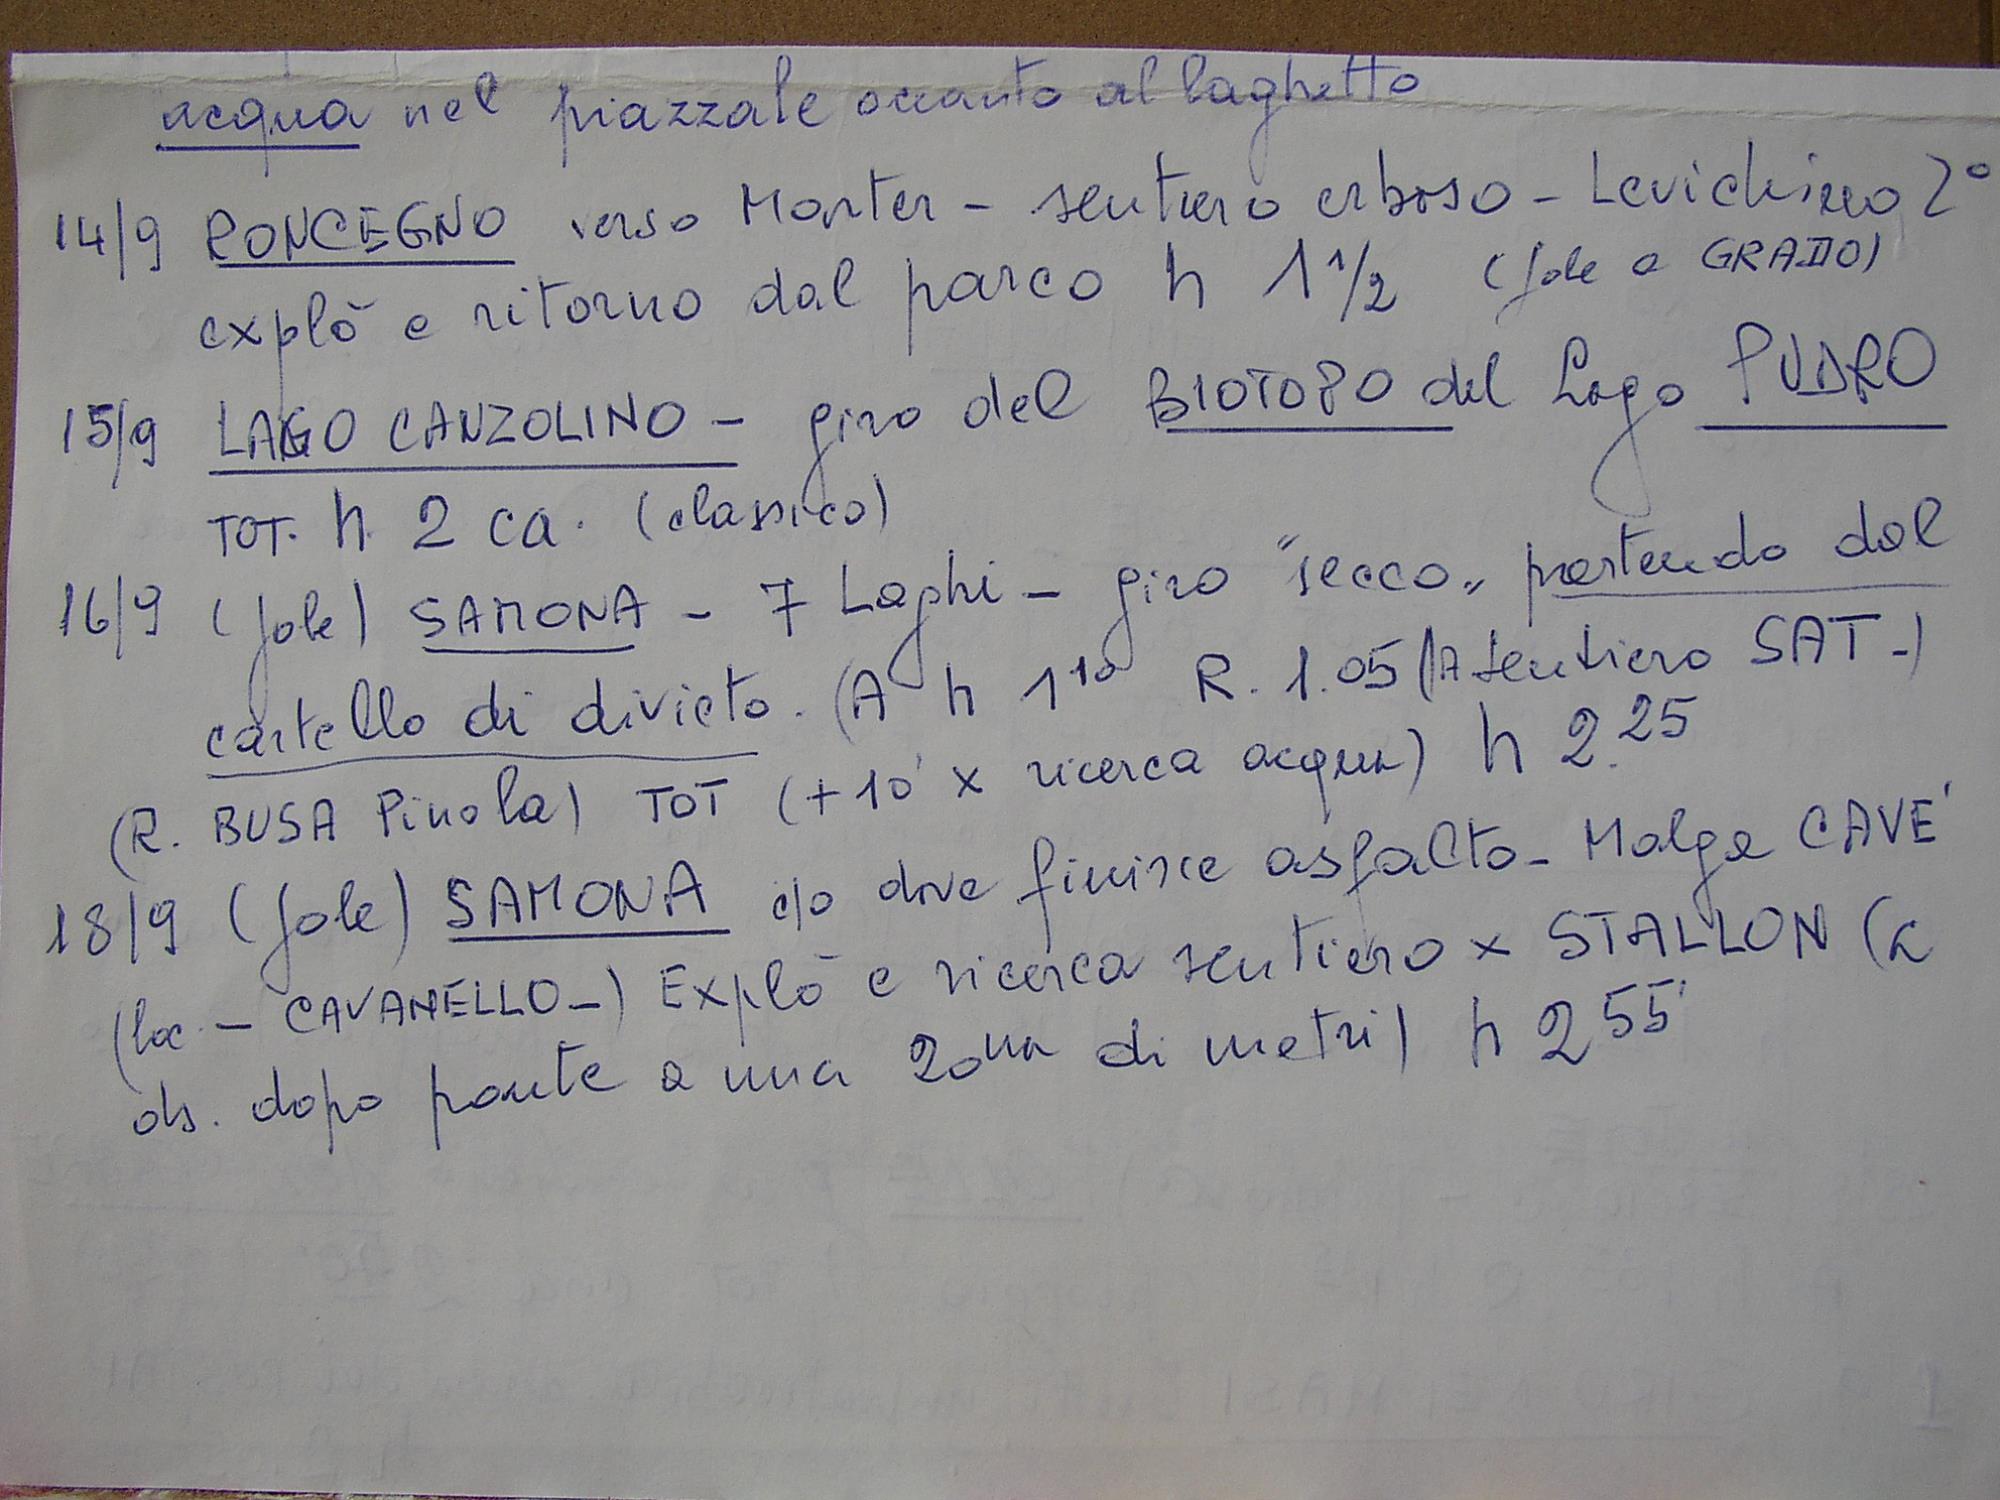 acqua nel piazzale accanto al laghetto
14/9 RONCEGNO verso Monter - sentiero erboso - Levichino 2°
explò e ritorno dal parco h 1 1/2 (Jole a GRADO)
15/9 LAGO CANZOLINO - giro del BIOTOPO del Lago PUDRO
TOT. h. 2 ca. (classico)
16/9 (Jole) SAMONA - 7 Laghi - giro "secco" partendo dal
cartello di divieto. (A h 1 10 R. 1.05 (A sentiero SAT-)
(R. BUSA Pinola) TOT (+10' x ricerca acqua) h 2.25
18/9 (Jole) SAMONA c/o dove finisce asfalto - Malga CAVE'
(loc. - CAVANELLO-) Explò e ricerca sentiero x STALLON (a
ds. dopo ponte a una 20na di metri) h 2 55'